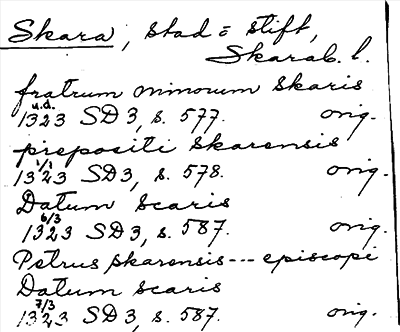 Skara, stad = stift,
Skarab. l.
fratrum minorum Skaris
u.d.
1323 SD 3, s. 577. orig.
prepositi Skarensis
1/1
1323 SD 3, s. 578. orig.
Datum Scaris
6/3
1323 SD 3, s. 587. orig.
Petrus Skarensis --- episcopi
Datum Scaris
7/3
1323 SD 3, s. 587. orig.